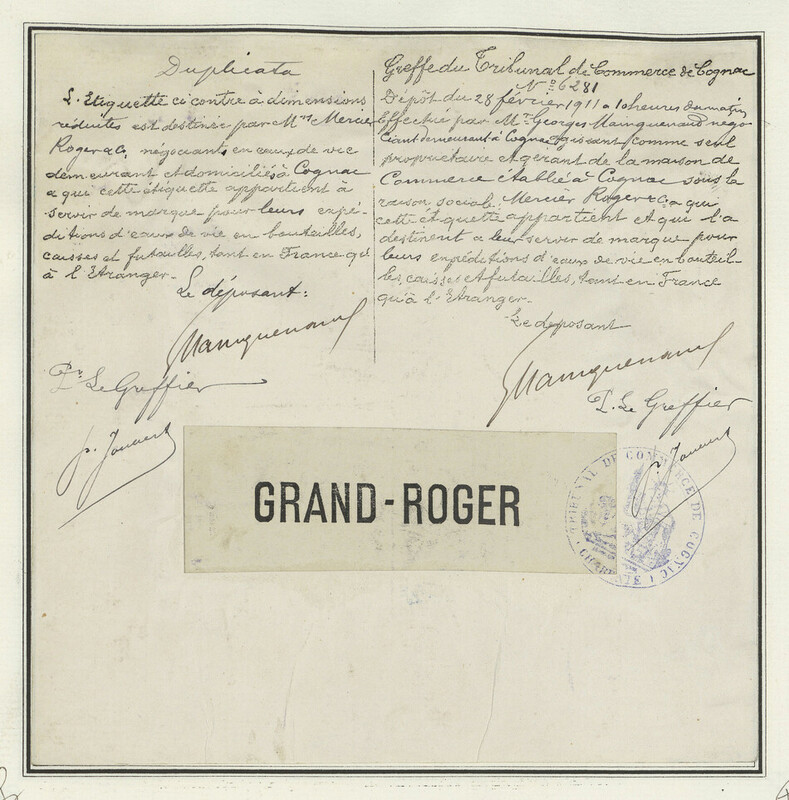 Duplicata
L'Etiquette ci contre à dimensions
réduites est destinée par Mrs Mercier
Roger & Co, négociants en eaux de vie
demeurant et domiciliés à Cognac
a qui cette étiquette appartient à
servir de marque pour leurs expé-
ditions d'eaux de vie en bouteilles,
caisses et futailles, tant en France qu'
à l'Etranger.
Le déposant:
Mainguenaud
Pr Le Greffier
Greffe du Tribunal de Commerce de Cognac
No 6281
Dépôt du 28 février 1911 a 10 heures du matin
Effectué par Mr Georges Mainguenaud négo-
ciant demeurant à Cognac agissant comme seul
propriétaire et gérant de la maison de
Commerce établie à Cognac sous la
raison sociale: Mercier Roger & Co a qui
cette étiquette appartient et qui l'a
destinent a leur servir de marque pour
leurs expéditions d'eaux de vie en bouteil-
les, caisses et futailles, tant en France
qu'à l'Etranger.
Le déposant
Mainguenaud
P. Le Greffier
GRAND-ROGER
TRIBUNAL DE COMMERCE DE COGNAC
(CHARENTE)